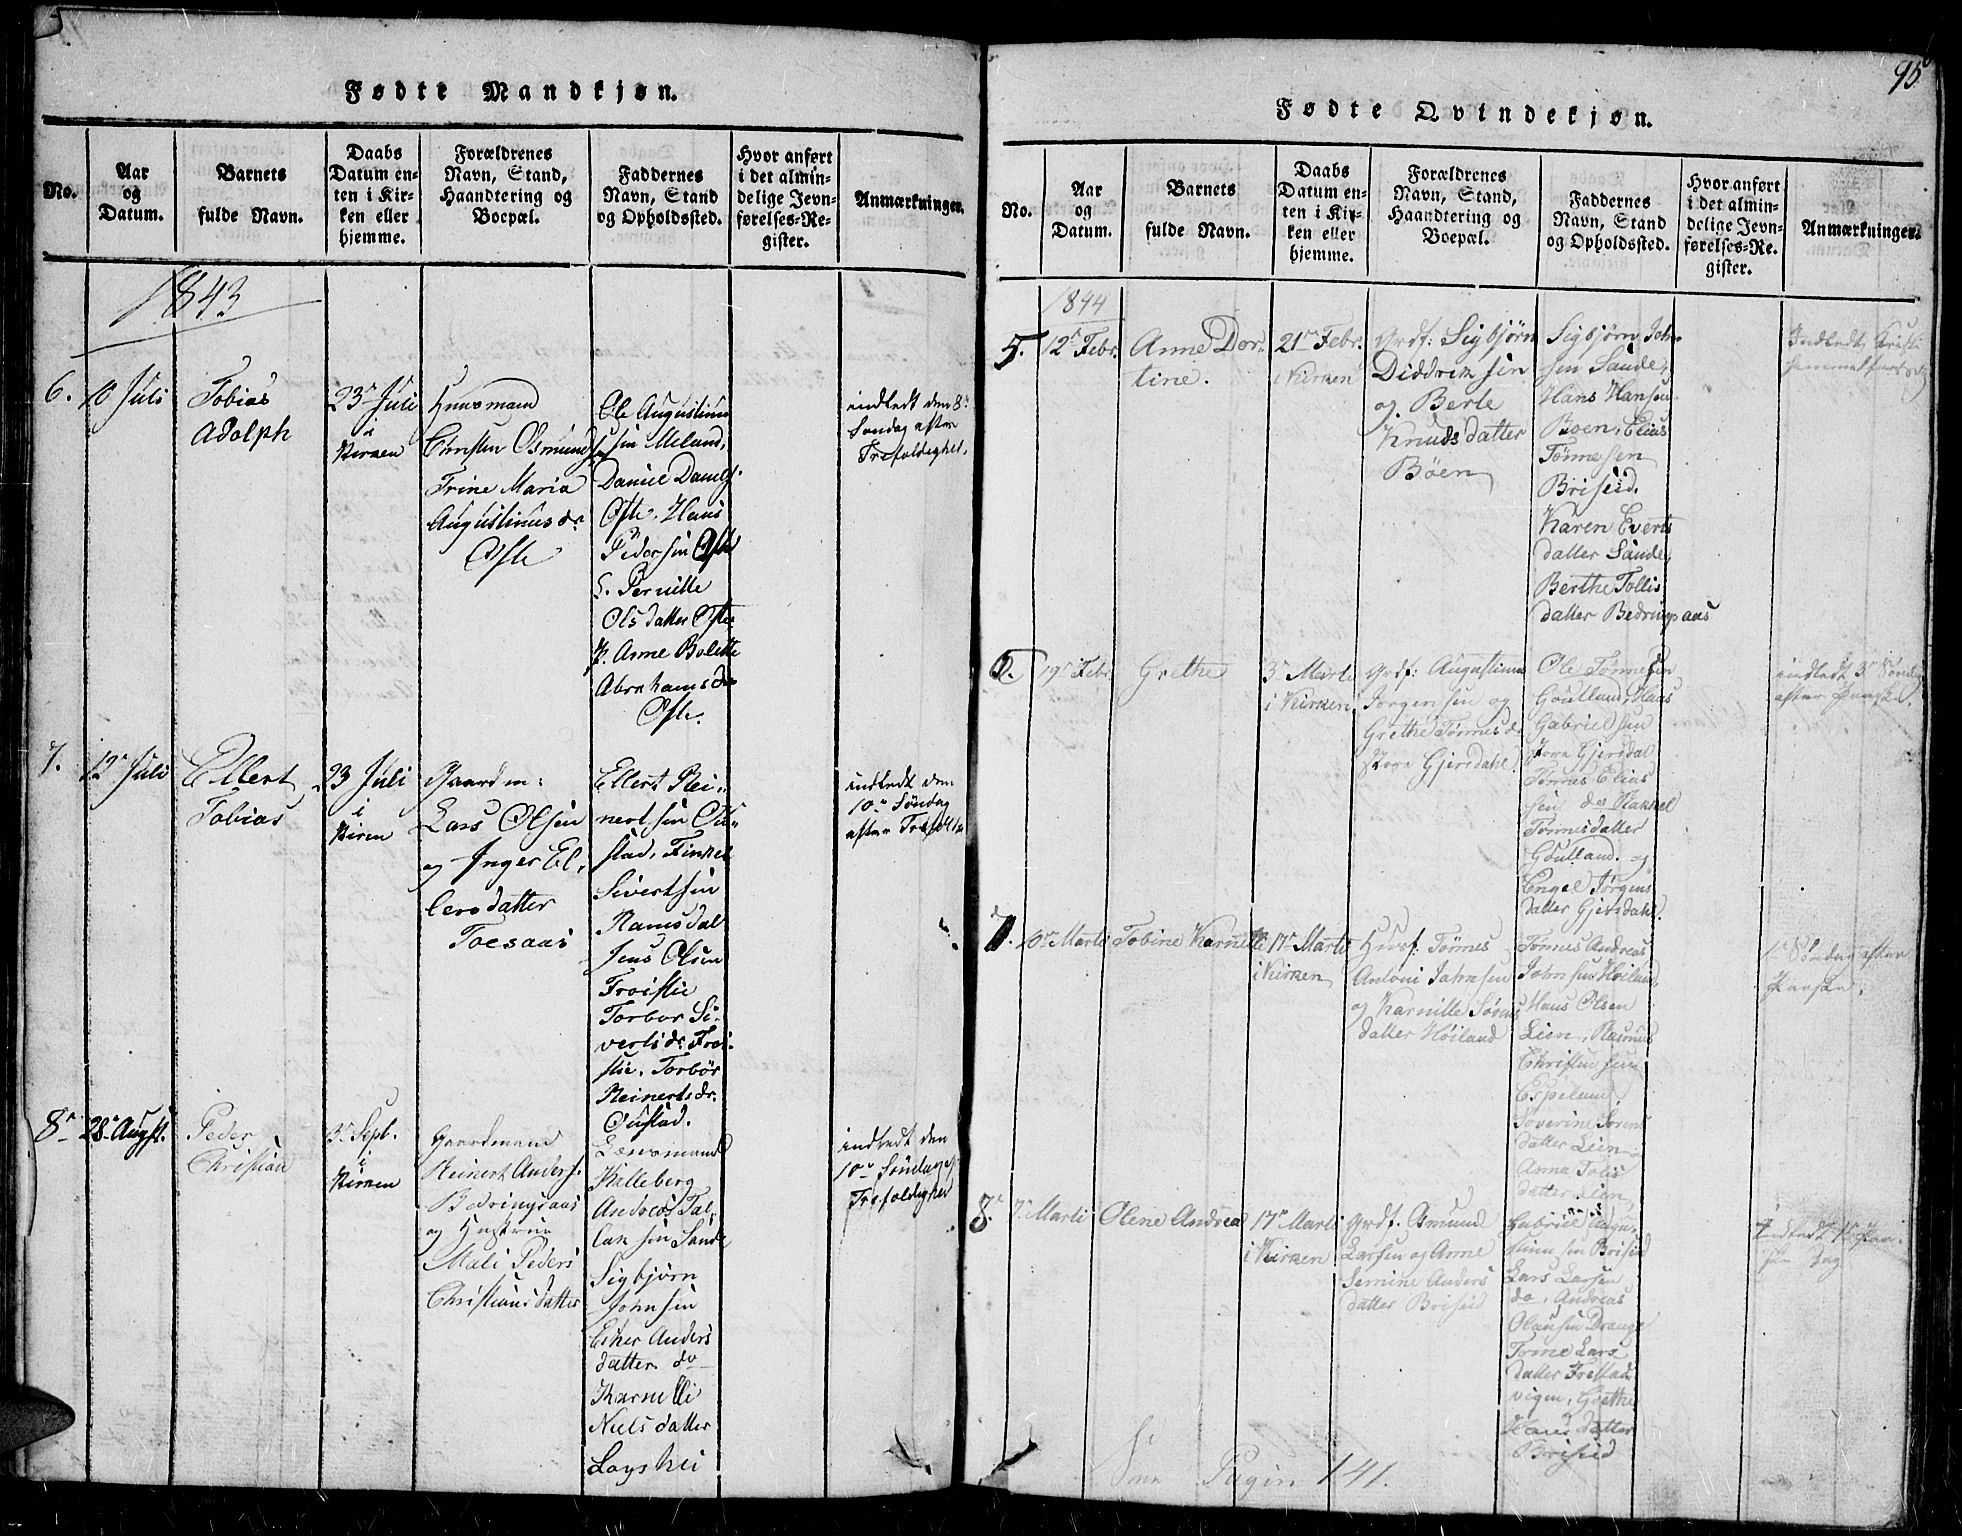 5.
Fødte Mandkjøn.
No.
Aar
og
Datum.
Barnets
fulde Navn.
Daabs
Datum en-
ten i Kir-
ken eller
hjemme.
Forældrenes
Navn, Stand,
Haandtering og
Boepæl.
Faddernes
Navn, Stand
og Opholdssted.
Hvor anført
i det almin-
delige Jevn-
førelses-Re-
gister.
Anmærkninger.
1843
6.
10 Juli
Tobias
Adolph
23r Juli
i
Kirken
Huusmand
Christen Osmunds
Trine Maria
Augustinusdr
Ofte
Ole Augustinus
sen Meland,
Daniel Daniels.
Ofte, Hans
Pedersen Ofte
Pernille
Olsdatter Ofte
P. Anne Bolette
Abrahamsdr
Ofte.
indledt den 8de
Søndag efter
Trefoldighed.
7.
12r Juli
Ellert
Tobias
23 Juli
i
Kirken
Gaardm:
Lars Olsen
og Inger El-
lersdatter
Toesaas
Ellert Rei-
nertsen Ou-
stad, Finkel
Sivertsen
Ramsdal
Jens Olsen
Froistie
Torbor Si-
vertsdr Froi-
stie, Torbør
Reinertsdr.
Oustad.
indledt den
10de Søndag
efter Trefold
8r
28r Augst.
Peder
Christian
3r Sept.
i
Kirken
Gaardmand
Reinert Anders.
Bedringsaas
og Hustrue
Mali Peders
Christiansdatter
Lensmand
Kalleberg
Andreas Tal-
laksen Sande
Sigbjørn
Johnsen
Esher Anders
datter do
Karnelli
Nielsdatter
Layshei
indledt den
10de Søndag ef
Trefoldighed
95
Fødte Qvindekjøn.
No.
Aar
og
Datum.
Barnets
fulde Navn.
Daabs
Datum en-
ten i Kir-
ken eller
hjemme.
Forældrenes
Navn, Stand,
Haandtering og
Boepæl.
Faddernes
Navn, Stand
og Opholdssted.
Hvor anført
i det almin-
delige Jevn-
førelses-Re-
gister.
Anmærkninger.
1844
5.
12r Febr.
Anne Dor-
tine.
21r Febr.
i Kirken
Grdf: Sigbjørn
Diddriksen
og Berte
Knudsdatter
Böen
Sigbjørn Joh-
sen Sande,
Hans Hansen
Boen, Elias
Tønnesen
Briseid.
Karen Everts
datter Sande,
Berthe Tollis
datter Bedringsaas
Indledt Kristi
19r Febr
Grethe
3r Marti
i Kirken
Grdf: Augustinus
Jørgensen og
Grethe Tønnesdr
store Gjersdahl.
Ole Tønnesen
Goulland, Hans
Gabrielsen
store Gjersdal
Tønnes Elias
sen do Rakkel
Tønnesdatter
Goulland. og
Engel Jørgens
datter Gjersdahl.
indledt 3r Søndag
efter Paaske.
7.
10r Marti
Tobine Karnelle
17r Marti
i Kirken
Huusf: Tönnes
Antoni Johnsen
og Karnille Sørens
datter Höiland
Tönnes Andreas
Johnsen Höiland,
Hans Olsen
Lien, Rasmus
Christensen
Espeland.
Soverine Sorens
datter Lien
Anna Tolis
datter Lien
1r Søndag efter
Paaske.
8r.
7r Marti
Olene Andrea
17r Marti
i Kirken
Grdf. Osmund
Larsen og Anne
Semine Anders
datter Briseid
Gabriel Augu-
stinusen Briseid
Lars Larsen
do, Andreas
Olausen Drange
Tome Lars
datter Frestad
vigen, Grethe
Hansdatter
Briseid
Indledt 1r Paa-
ske Dag
See Pagin 141.